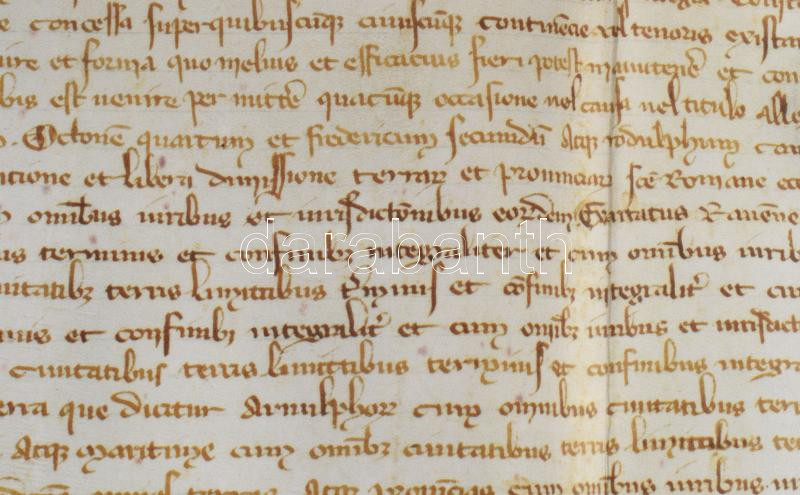 concessa super quibuscumq cuiuscumq continecie vel tenoris exista
et forma quo melius et efficacius fieri potest manutene et con
bis est uenire per mitte quacumq occasione uel causa uel titulo alle
Octone quartum et fredericum secundu Atq rodulphum
et libera dimissione terrar et prouinciar sce Romane ecc
omibus iuribus et iurisdictonibus eordem Exarcatus Rauene
us terminis et confinibz integraliter et cum omibus iurib
uitatibz terris limitibus tminis et cofinibz integralit et cu
inis et confinibz integralit et cum omibz iuribus et iurisdict
Ciuitatibus terris limitibus terminis et confinibus integra
erra que dicitur Arnulphor cum omnibus ciuitatibus terr
Atq maritime cum omibz ciuitatibus terris limitibus te
Atq prouincias cum omibus iuribus
darabanth